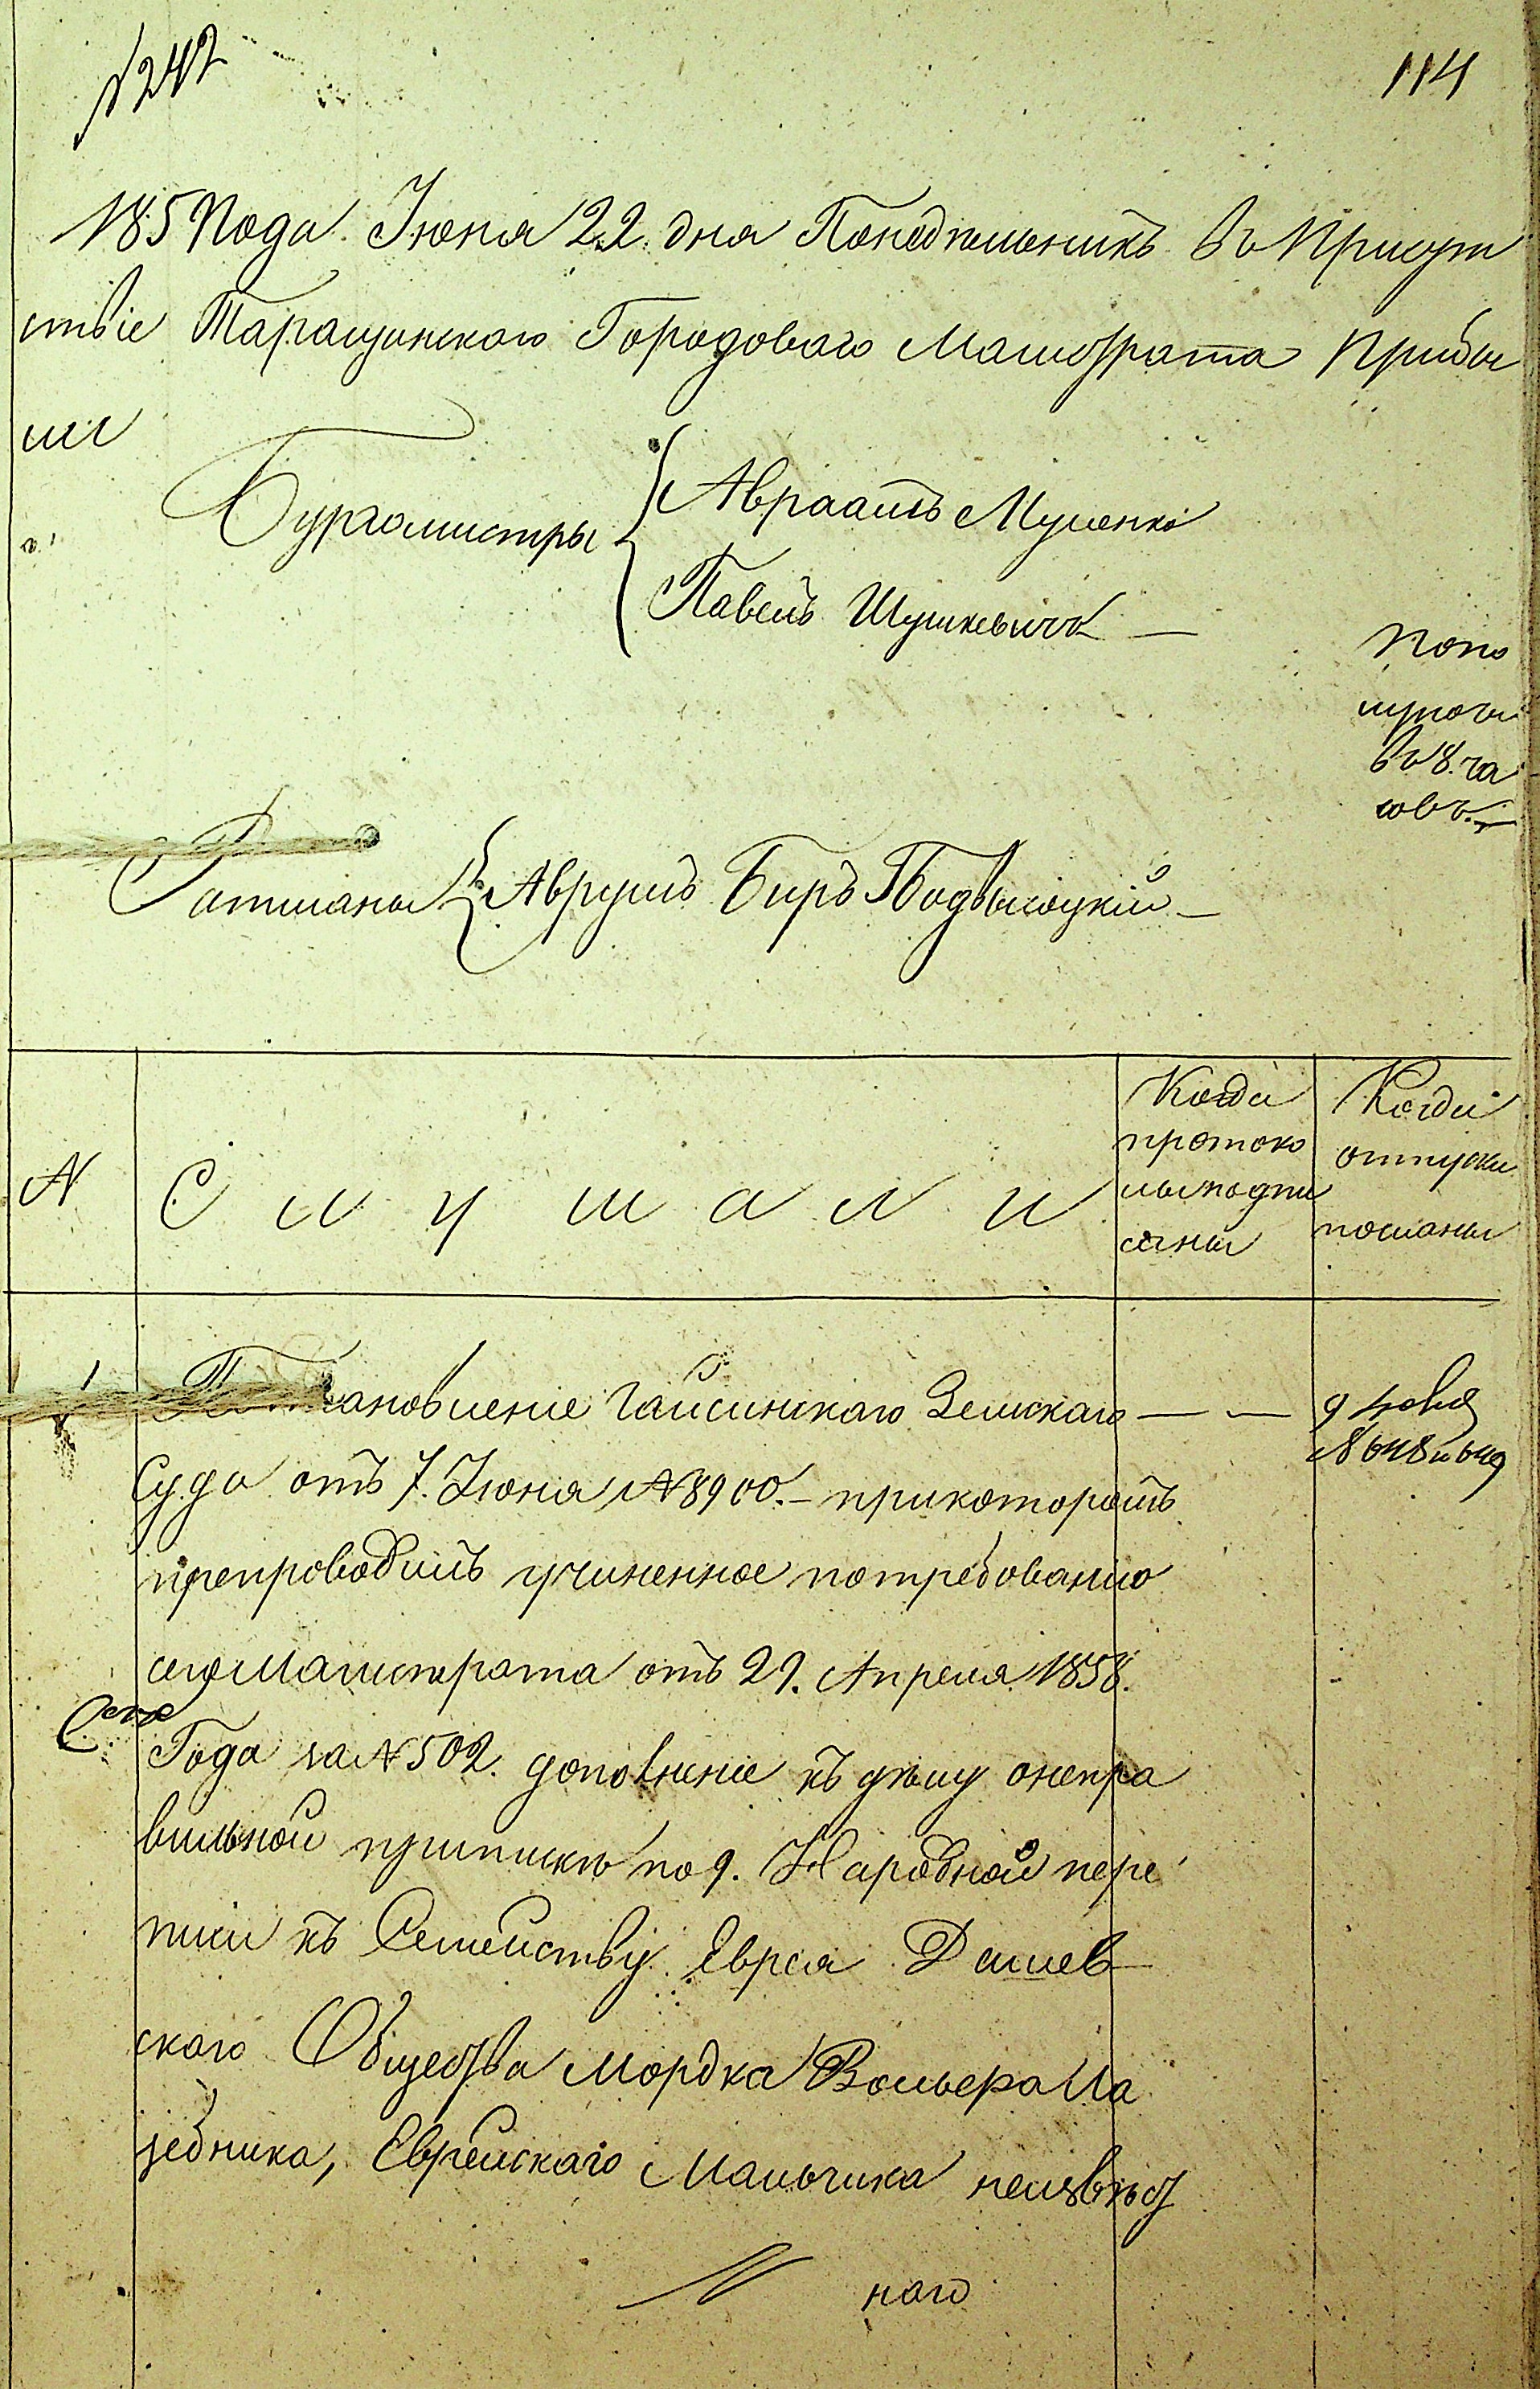 № 242
114
185 года Июня 22 дня Понедѣльникъ въ Присут
ствіе Таращанскаго Городоваго Магистрата Прибы
ли
Бургомистры
Авраамъ
Павелъ Шушкевичъ —
попо
лупочи
въ 8. ча
совъ. —
Ратманы
Аврумъ Беръ Подвысоцкій —
№
Слушали
Когда
протоко
лы подпи
саны
Когда
отпуски
посланы
1
ановленіе Гайсинскаго Земскаго — —
Суда отъ 7. Июня № 8900. — прикоторомъ
препроводилъ учиненное потребованію
сегоМагистрата отъ 29. Апреля 1858.
Года за № 502. дополненіе къ дѣлу онепра
вильной припискѣ по 9. Народной пере
писи къ Семейству Еврея Дашев
скаго Общества Мордка Вольера Ма
зебника, Еврейскаго Мальчика неизвѣст
наго